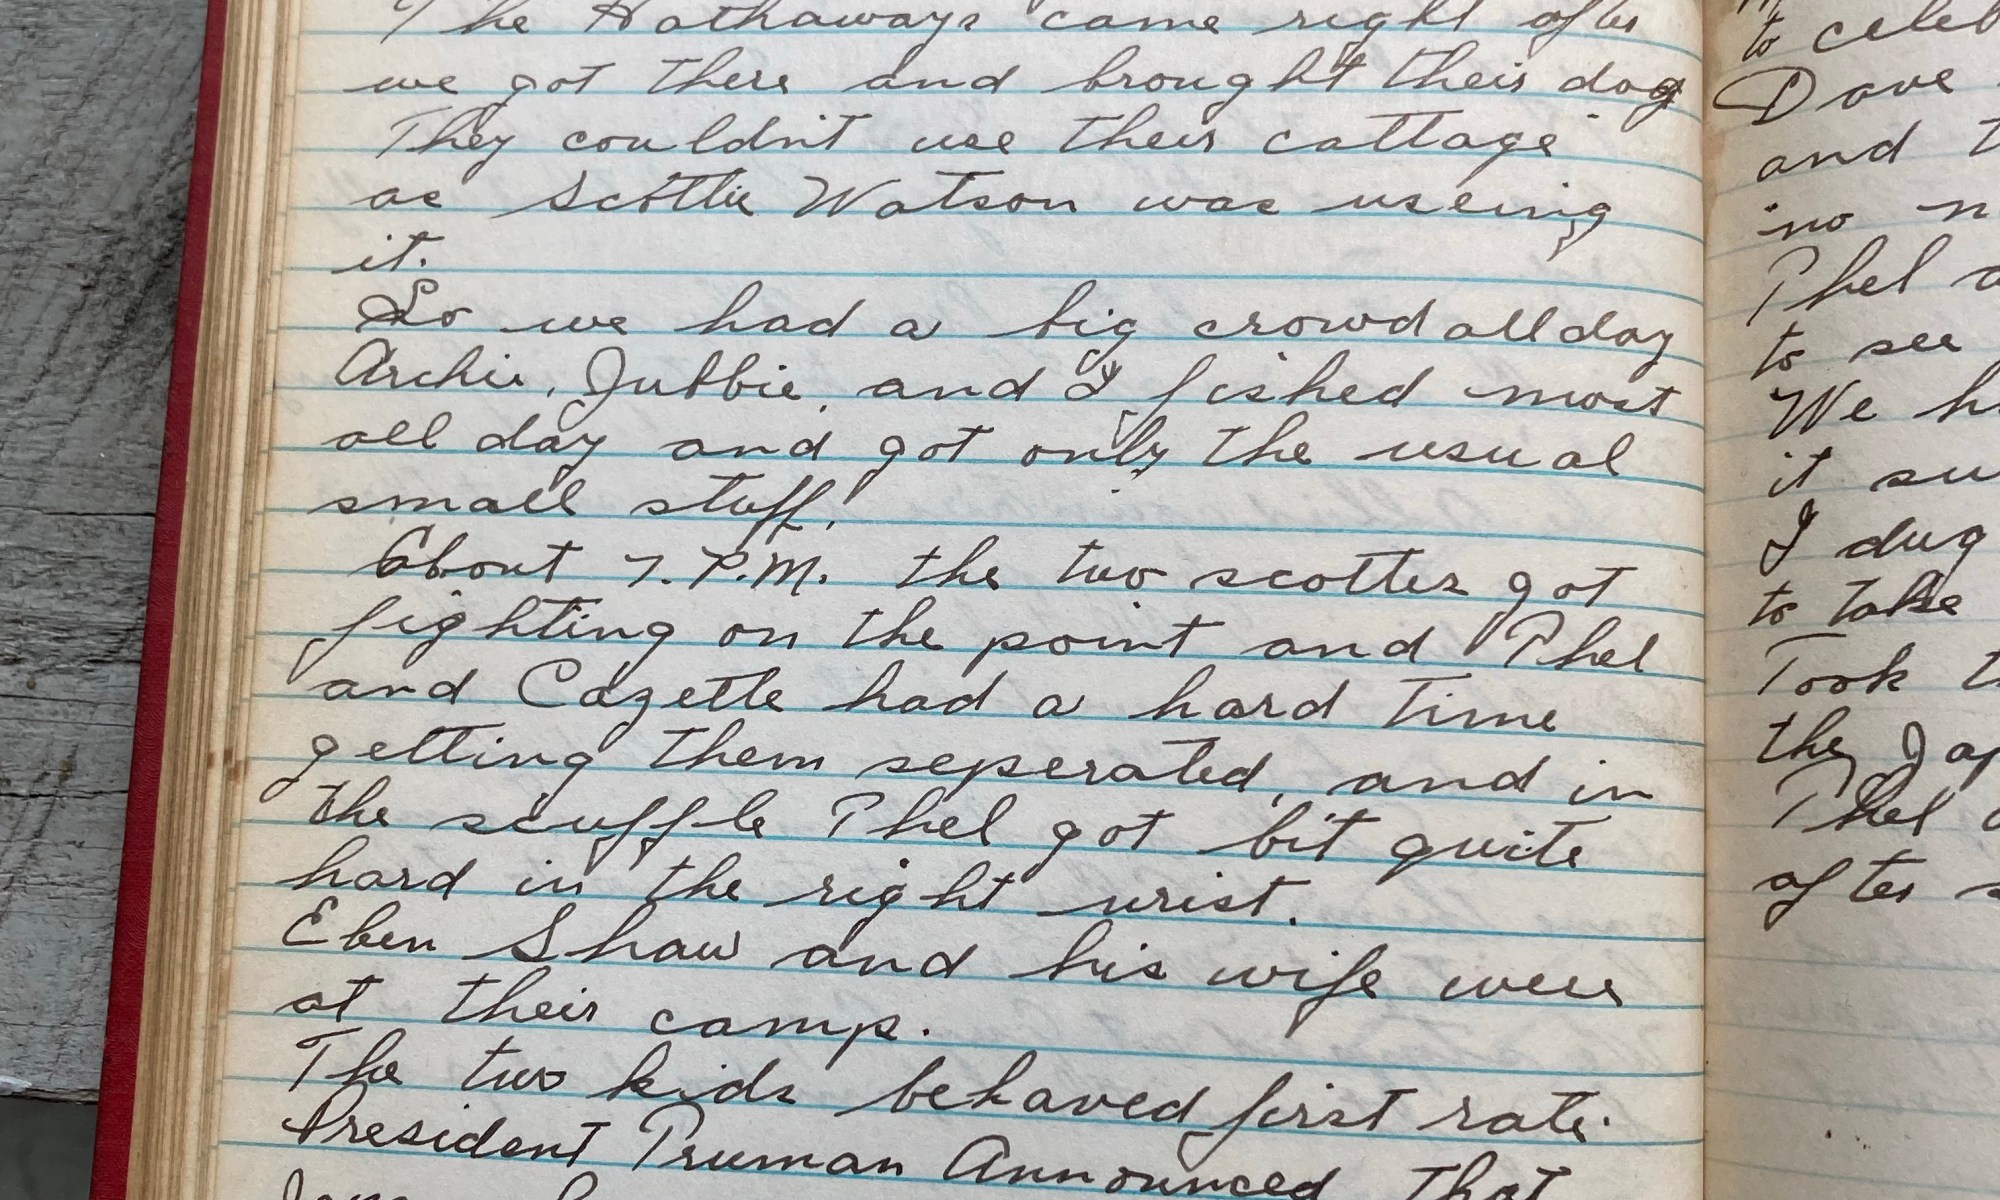 The Hathaways came right after
we got there and brought their dog
They couldn't use their cottage
as Scottie Watson was useing
it.
So we had a big crowd all day
Archie, Jubbie, and I fished most
all day and got only the usual
small stuff.
About 7. P.M. the two scotties got
fighting on the point and Phel
and Cozette had a hard time
getting them seperated, and in
the scuffle Phel got bit quite
hard in the right wrist.
Eben Shaw and his wife were
at their camp.
The two kids behaved first rate.
President Truman Announced that
to celeb
Dave
and t
no n
Phel a
to see
We h
it su
I dug
to take
Took t
the Jap
Phel
after s